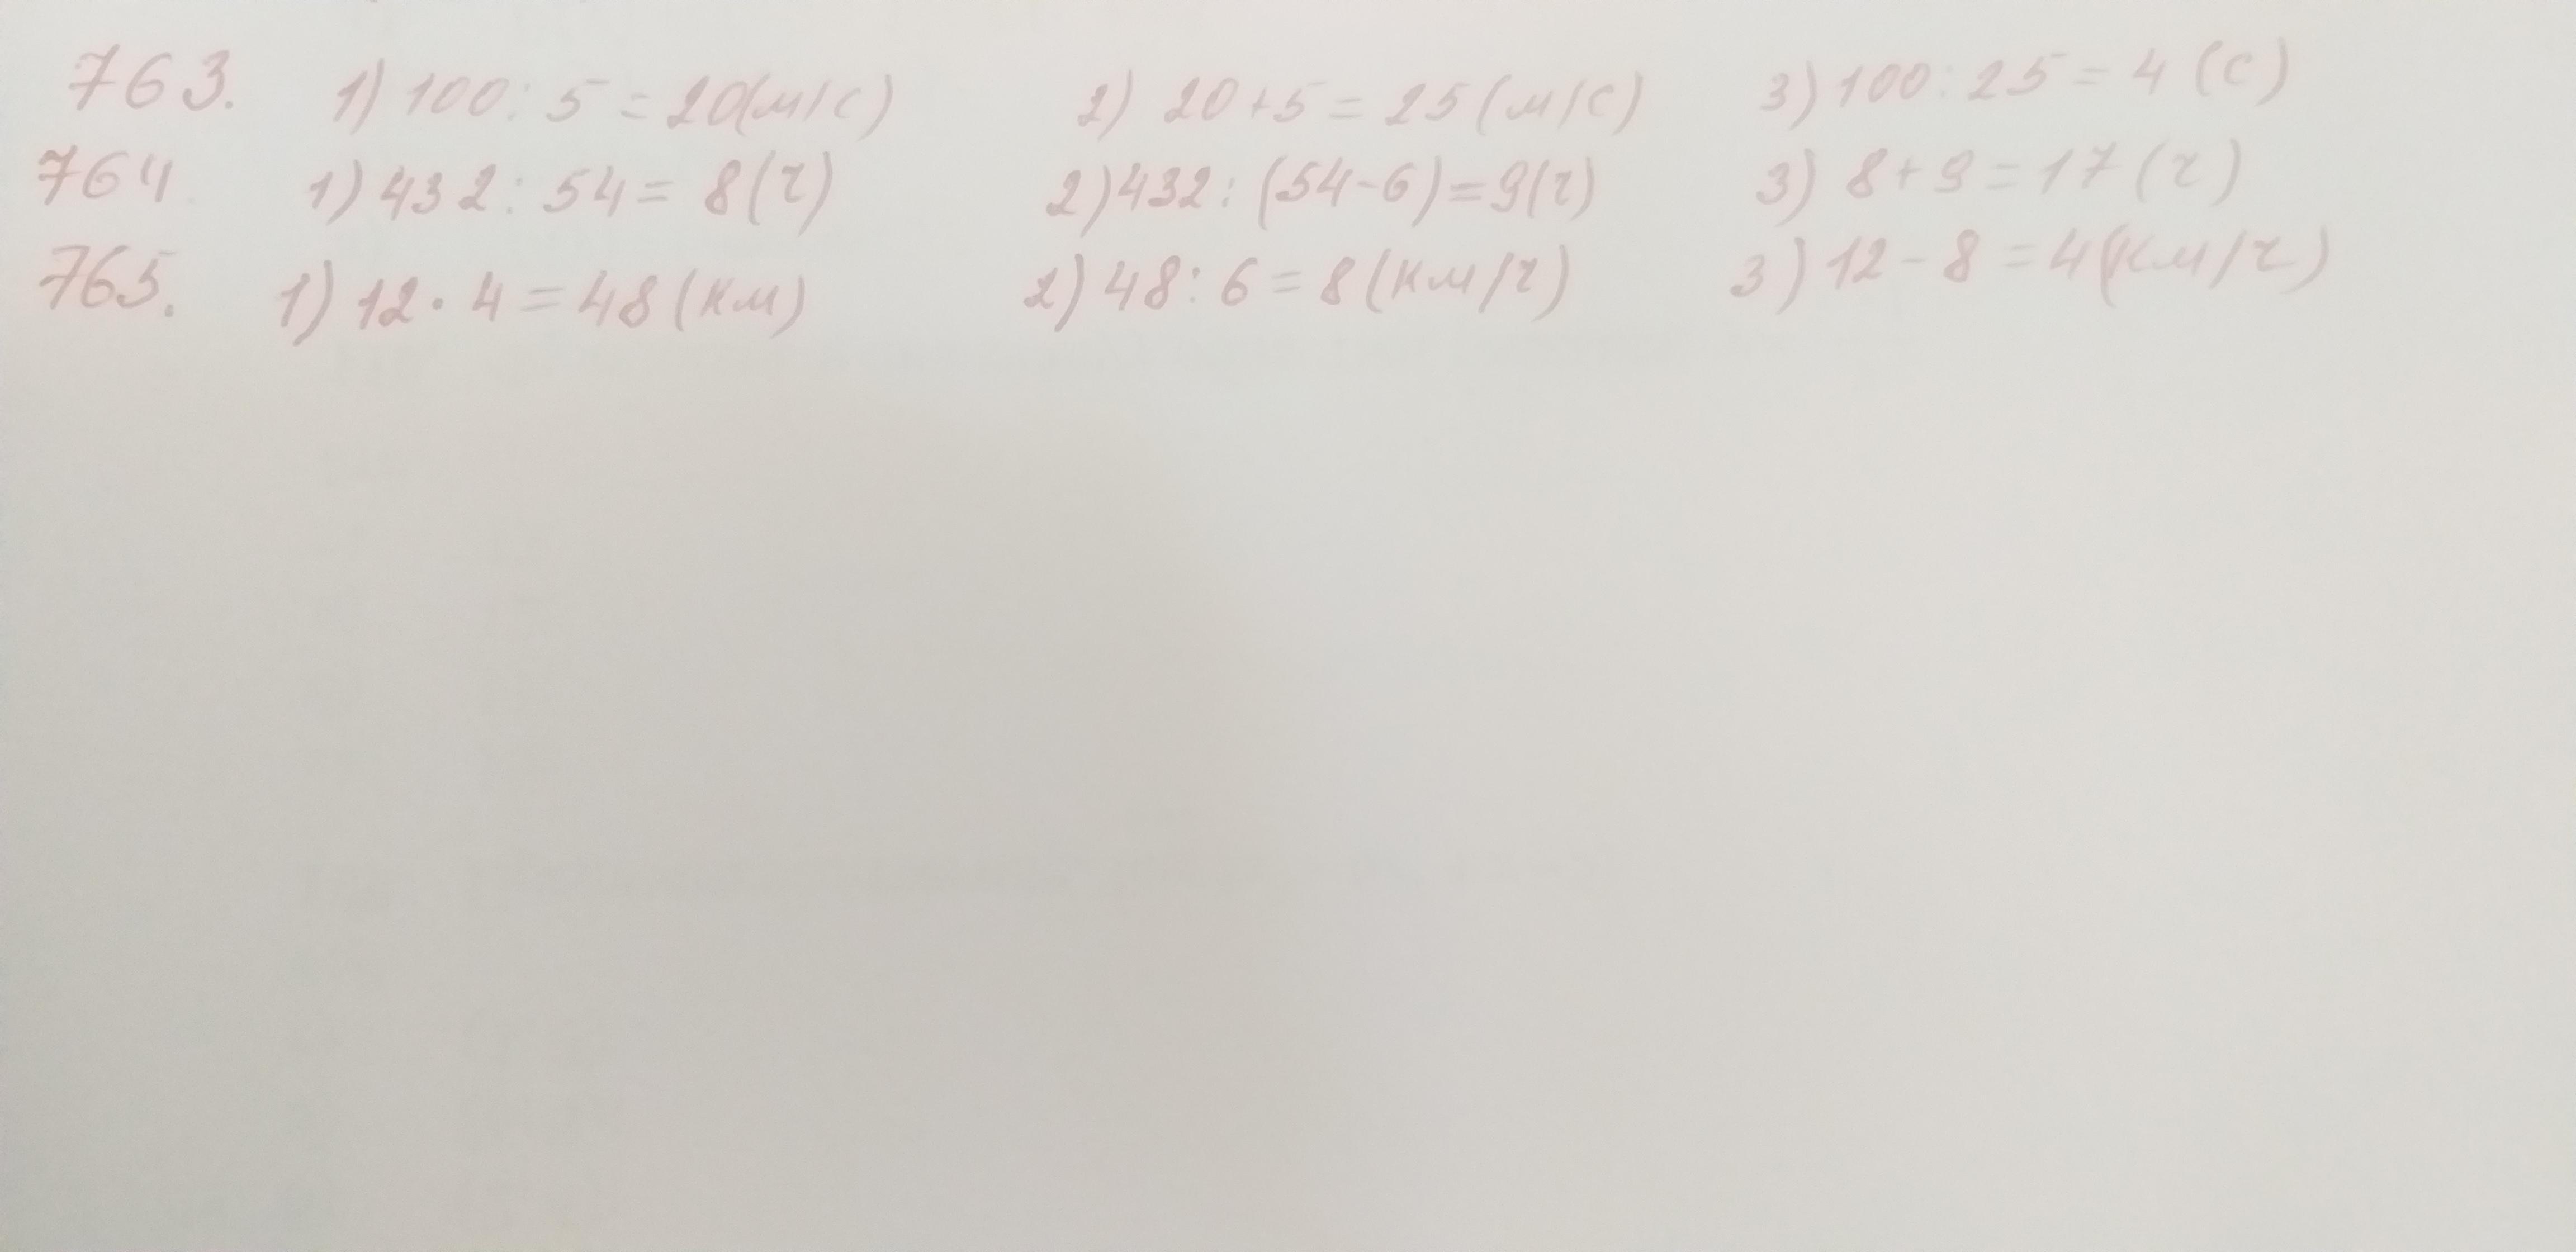 763. 1) 100 : 5 = 20(м/с) 2) 20+5 = 25 (м/с) 3) 100 : 25 = 4 (с)
764 1) 432 : 54 = 8(ч) 2) 432 : (54-6) = 9(ч) 3) 8+9=17 (ч)
765. 1) 12 · 4 = 48 (км) 2) 48 : 6 = 8 (км/ч) 3) 12 - 8 = 4(км/ч)